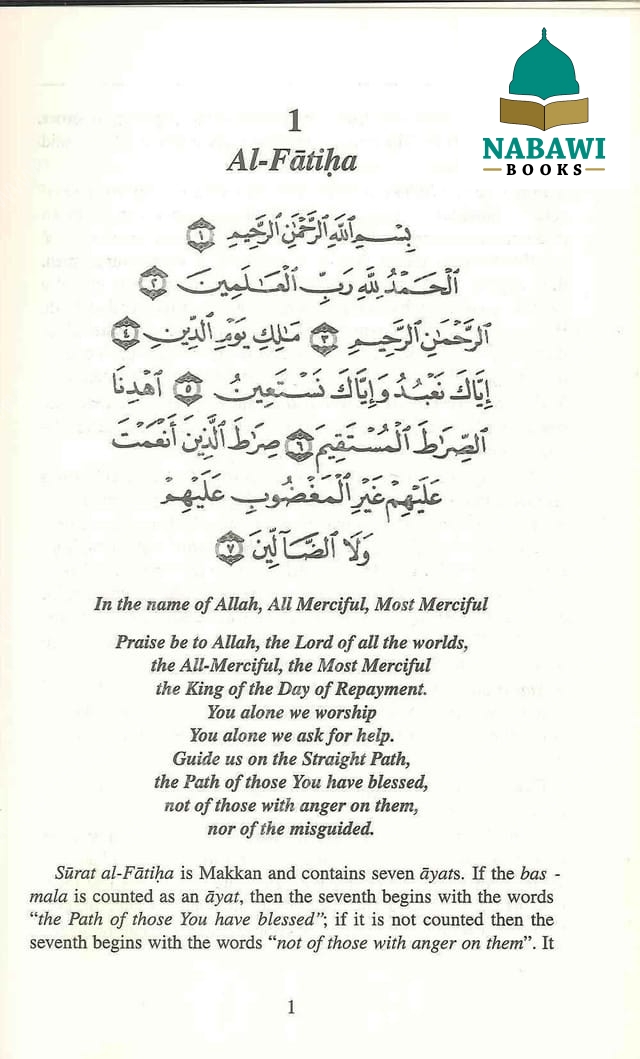 NABAWI
BOOKS
1
Al-Fātiḥa
بِسْمِ ٱللَّهِ ٱلرَّحْمَٰنِ ٱلرَّحِيمِ ١
ٱلْحَمْدُ لِلَّهِ رَبِّ ٱلْعَٰلَمِينَ ٢
ٱلرَّحْمَٰنِ ٱلرَّحِيمِ ٣ مَٰلِكِ يَوْمِ ٱلدِّينِ ٤
إِيَّاكَ نَعْبُدُ وَإِيَّاكَ نَسْتَعِينُ ٥ ٱهْدِنَا
ٱلصِّرَٰطَ ٱلْمُسْتَقِيمَ ٦ صِرَٰطَ ٱلَّذِينَ أَنْعَمْتَ
عَلَيْهِمْ غَيْرِ ٱلْمَغْضُوبِ عَلَيْهِمْ
وَلَا ٱلضَّآلِّينَ ٧
In the name of Allah, All Merciful, Most Merciful
Praise be to Allah, the Lord of all the worlds,
the All-Merciful, the Most Merciful
the King of the Day of Repayment.
You alone we worship
You alone we ask for help.
Guide us on the Straight Path,
the Path of those You have blessed,
not of those with anger on them,
nor of the misguided.
Sūrat al-Fātiḥa is Makkan and contains seven āyats. If the bas -
mala is counted as an āyat, then the seventh begins with the words
“the Path of those You have blessed”; if it is not counted then the
seventh begins with the words “not of those with anger on them”. It
1